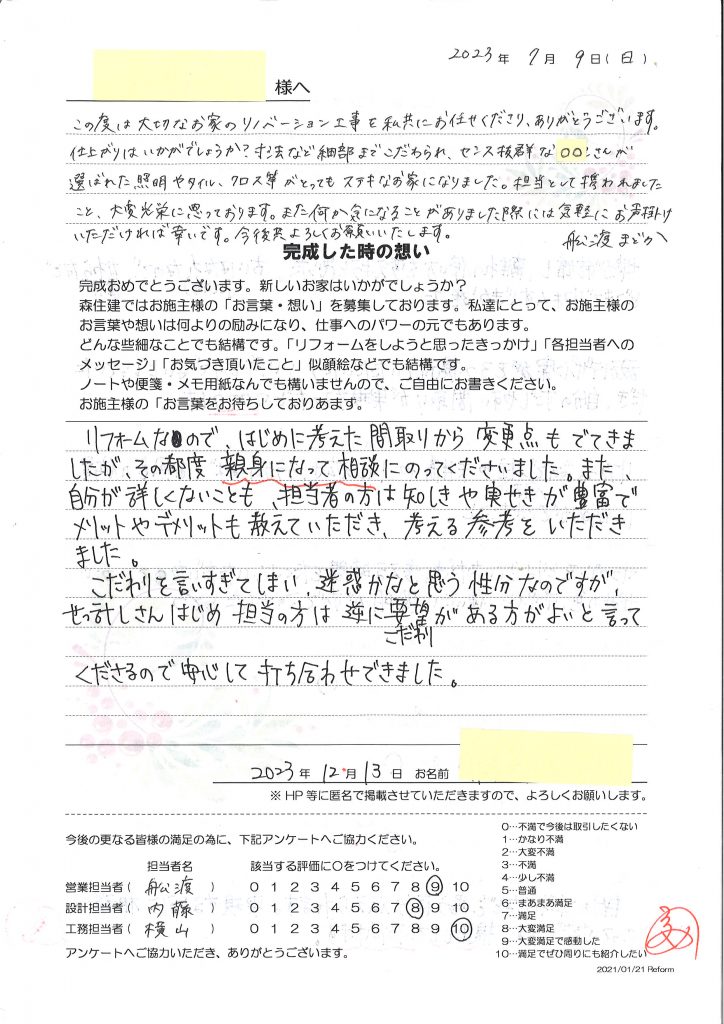 2023年 7月 9日(日)
様へ
この度は大切なお家のリノベーション工事を私共にお任せくださり、ありがとうございます。
仕上がりはいかがでしょうか?寸法など細部までこだわられ、センス抜群な〇〇さんが
選ばれた照明やタイル、クロス等がとってもステキなお家になりました。担当として携われました
こと、大変光栄に思っております。また何か気になることがありました際には気軽にお声掛け
いただければ幸いです。今後共よろしくお願いいたします。
舩渡 まどか
完成した時の想い
完成おめでとうございます。新しいお家はいかがでしょうか?
森住建ではお施主様の「お言葉・想い」を募集しております。私達にとって、お施主様の
お言葉や想いは何よりの励みになり、仕事へのパワーの元でもあります。
どんな些細なことでも結構です。「リフォームをしようと思ったきっかけ」「各担当者への
メッセージ」「お気づき頂いたこと」似顔絵などでも結構です。
ノートや便箋・メモ用紙なんでも構いませんので、ご自由にお書きください。
お施主様の「お言葉をお待ちしておりあます。
リフォームなので、はじめに考えた間取りから変更点もでてきま
したが、その都度 親身になって相談にのってくださいました。また、
自分が詳しくないことも、担当者の方は知しきや実せきが豊富で
メリットやデメリットも教えていただき、考える参考をいただき
ました。
こだわりを言いすぎてしまい、迷惑かなと思う性分なのですが、
せっ計しさんはじめ担当の方は逆に要望がある方がよいと言って
こだわり
くださるので安心して打ち合わせできました。
2023年 12月 13日 お名前
※HP等に匿名で掲載させていただきますので、よろしくお願いします。
今後の更なる皆様の満足の為に、下記アンケートへご協力ください。
担当者名 該当する評価に〇をつけてください。
営業担当者( 舩渡 ) 0 1 2 3 4 5 6 7 8 9 10
設計担当者( 内藤 ) 0 1 2 3 4 5 6 7 8 9 10
工務担当者( 横山 ) 0 1 2 3 4 5 6 7 8 9 10
アンケートへご協力いただき、ありがとうございます。
0…不満で今後は取引したくない
1…かなり不満
2…大変不満
3…不満
4…少し不満
5…普通
6…まあまあ満足
7…満足
8…大変満足
9…大変満足で感動した
10…満足でぜひ周りにも紹介したい
2021/01/21 Reform